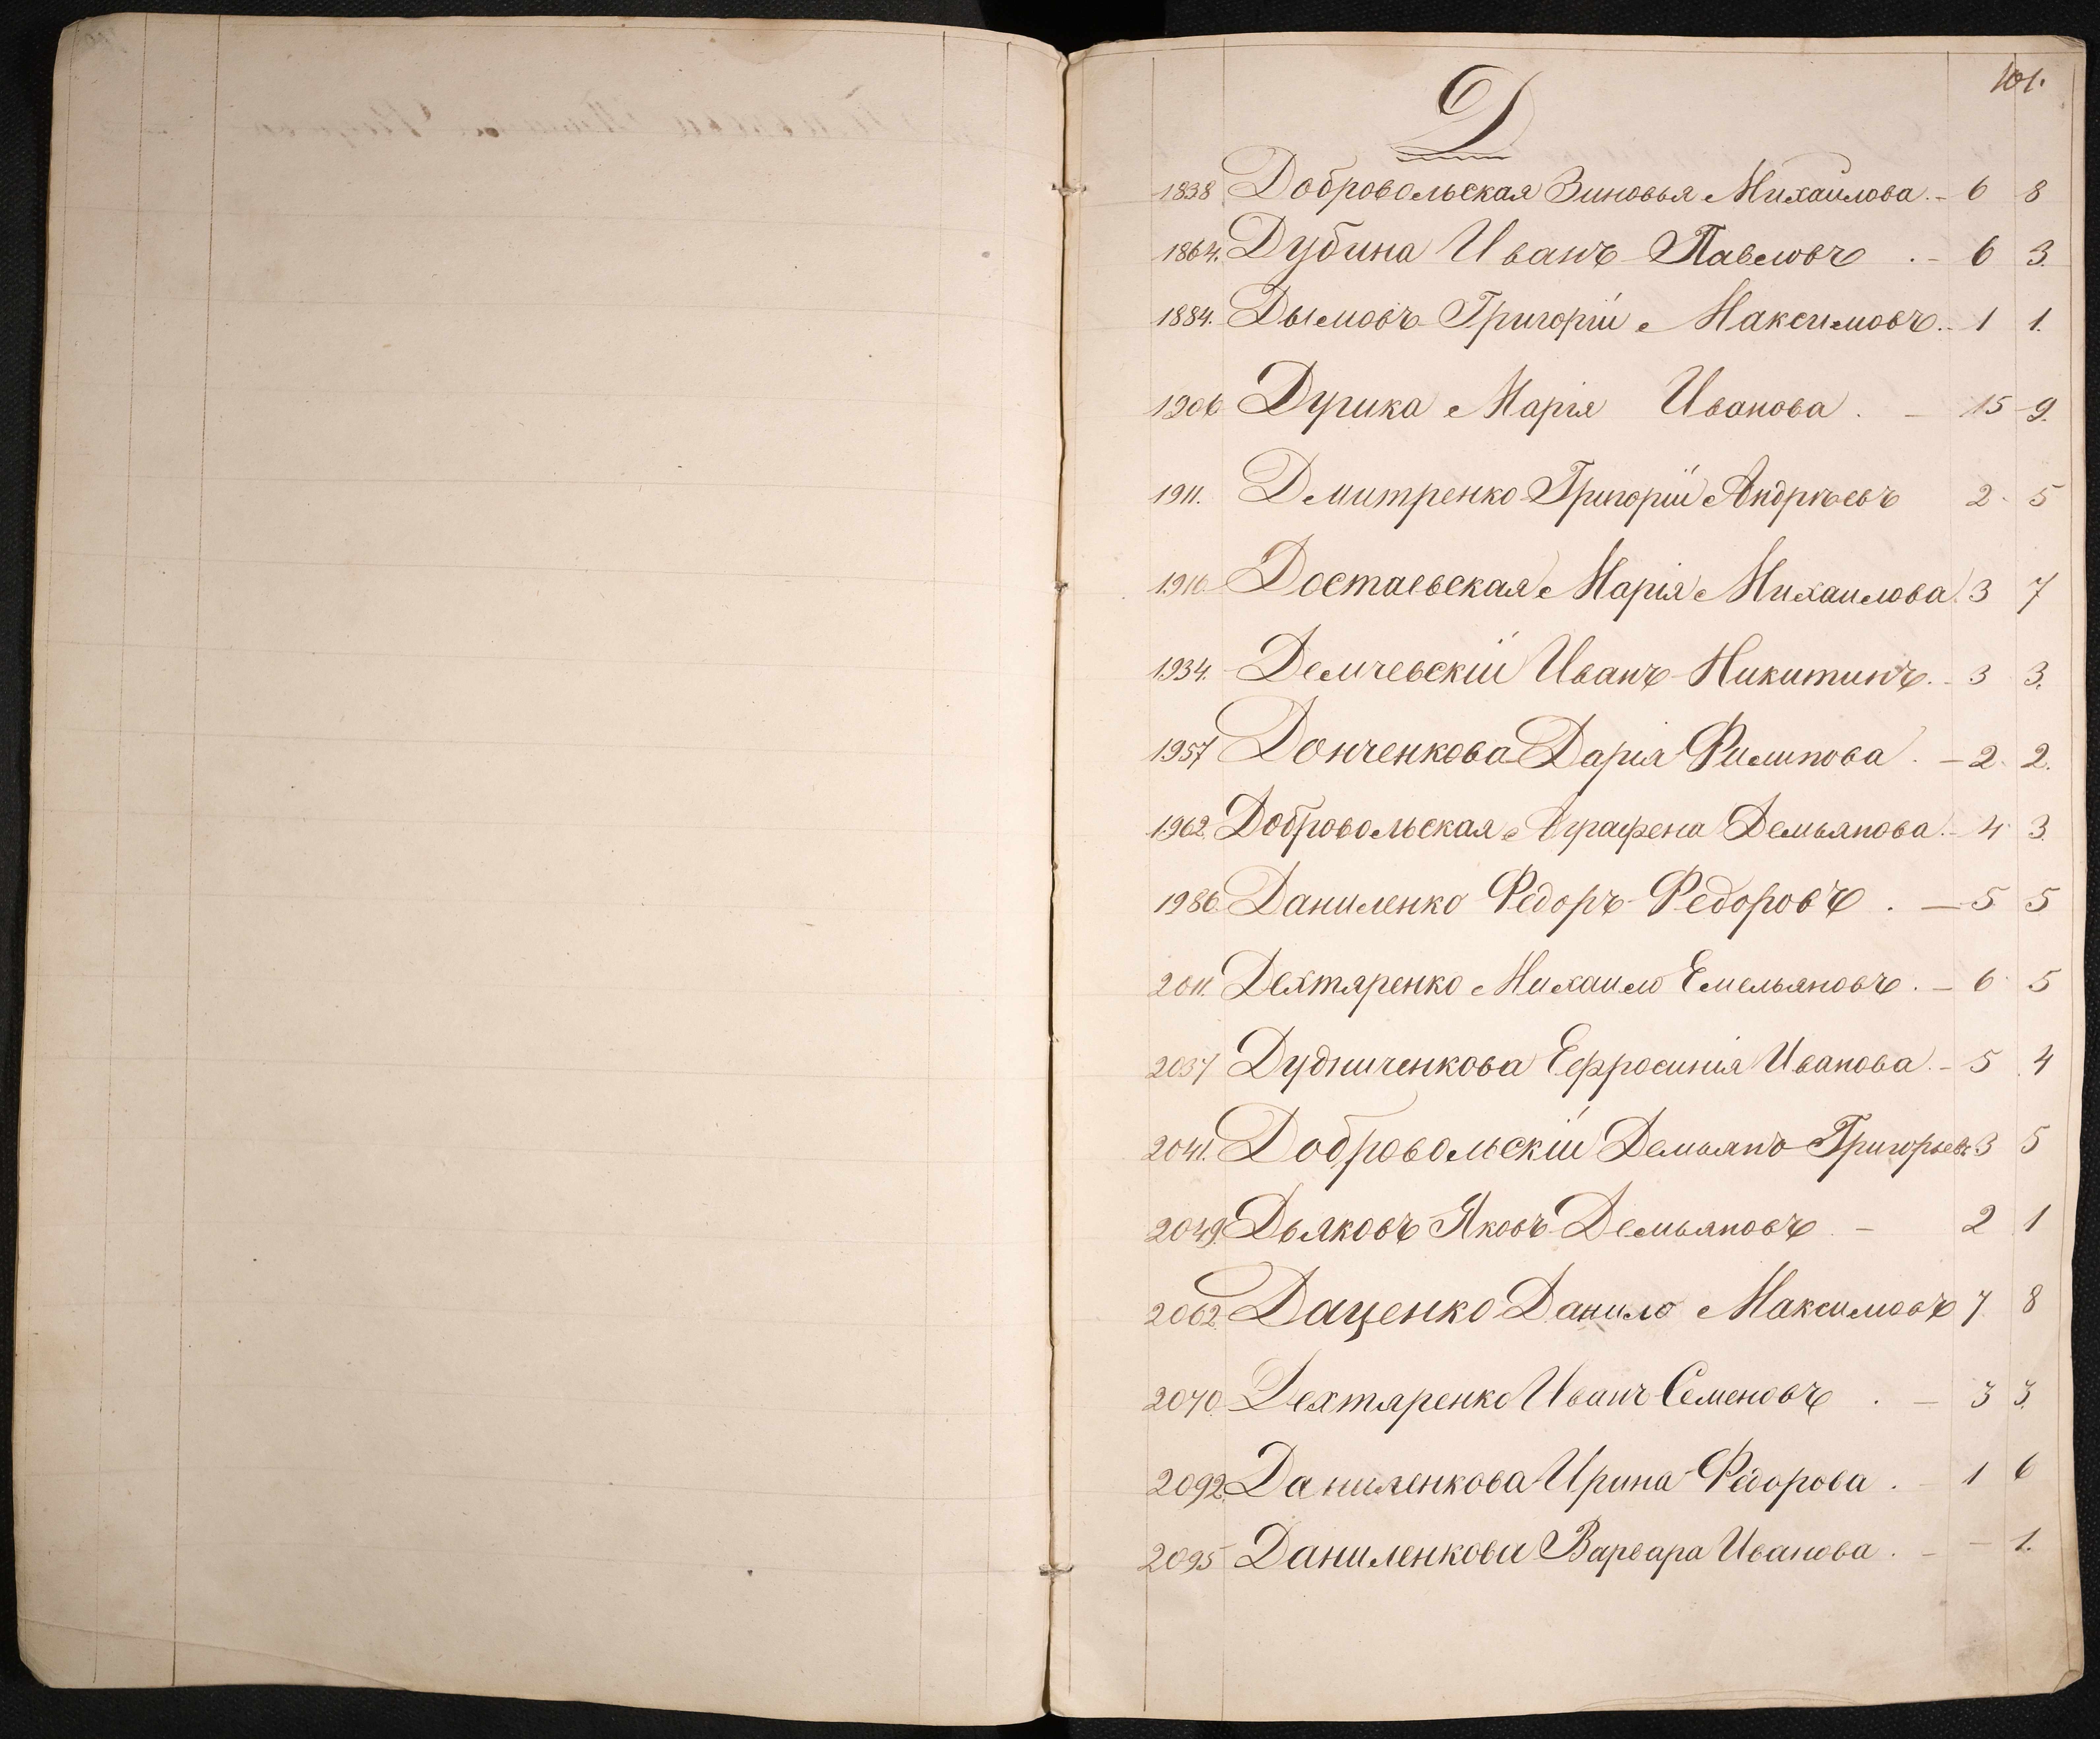 101.
Д
1838 Добровольская Зиновья Михайлова. - 6 8
1864. Дубина Иванъ Павловъ . - 6 3.
1884. Дымовъ Григорій Максимовъ. - 1 1.
1906 Марія Иванова . - 15 9.
1911. Дмитренко Григорій Андрѣевъ 2 5
1916 Достаевская Марія Михаилова 3 7
1934. Демчевскій Иванъ Никитинъ. - 3 3.
1957 Донченкова Дарія Филипова . - 2. 2.
1962. Добровольская Аграфена Демьянова. - 4 3.
1986. Даниленко Федоръ Федоровъ . - 5 5
2011. Дехтяренко Михаило Емельяновъ. - 6 5
2037 Дудниченкова Ефросинія Иванова. - 5 4
2041. Добровольскій Демьянъ Григорьевъ 3 5
2049. Дьяковъ Яковъ Демьяновъ . - 2 1
2062. Даценко Данило Максимовъ 7 8
2070. Дехтяренко Иванъ Семеновъ . - 3 3.
2092. Даниленкова Ирина Федорова . - 1 6
2095 Даниленкова Варвара Иванова . - - 1.